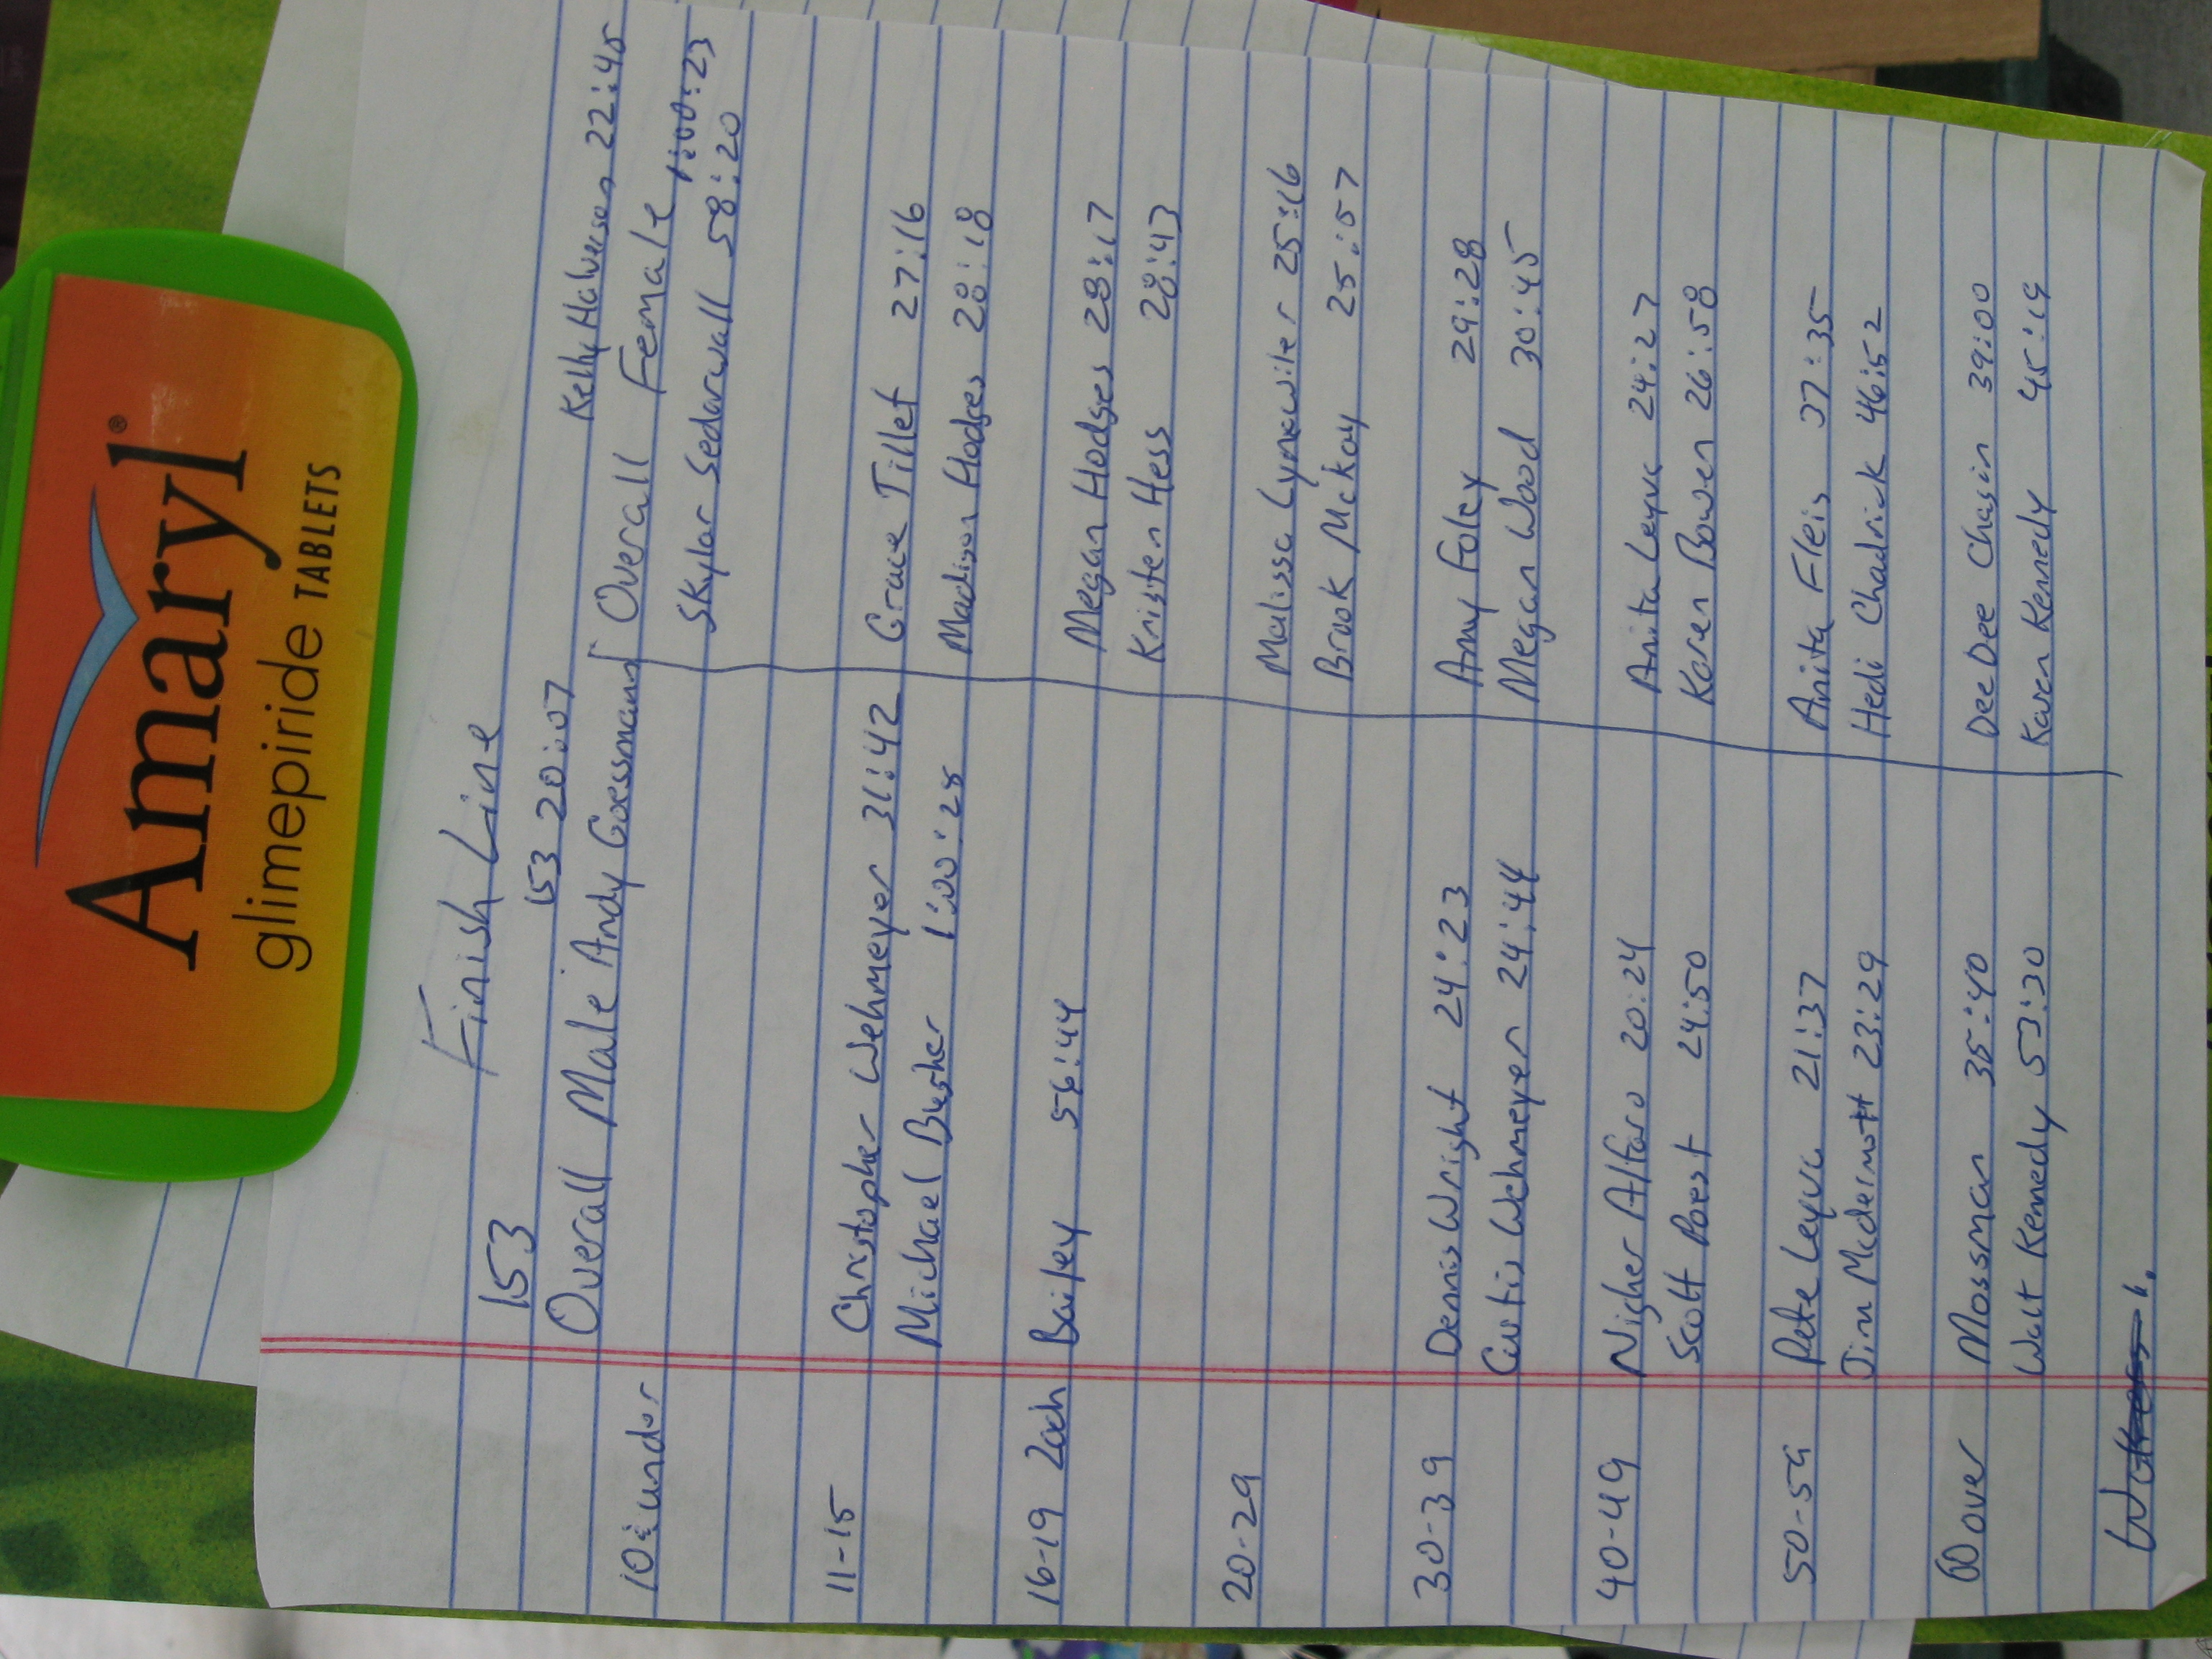 Amaryl®
glimepiride TABLETS
Finish Line
153 153 20:07 Kelly Halverson 22:45
Overall Male Andy Goessmann Overall Female
10 & under Skylar Sedarwall 58:20 1:00:23
11-15 Christopher Wehmeyer 31:42 Grace Tillet 27:16
Michael Busher 1:00:28 Madison Hodges 28:18
16-19 Zach Bailey 56:44 Megan Hodges 28:17
Kristen Hess 28:43
20-29 Malissa Lynawiler 25:16
Brook Mckay 25:57
30-39 Dennis Wright 24:23 Amy Foley 29:28
Curtis Wehmeyer 24:44 Megan Wood 30:45
40-49 Nigher Alfaro 20:24 Anita Leyva 24:27
Scott Poest 24:50 Karen Bowen 26:58
50-59 Pete Leyva 21:37 Anita Fleis 37:35
Jim Mcdermott 23:29 Hedi Chadrick 46:52
60 over Mossman 35:40 Dee Dee Chasin 39:00
Walt Kennedy 53:30 Karen Kennedy 45:19